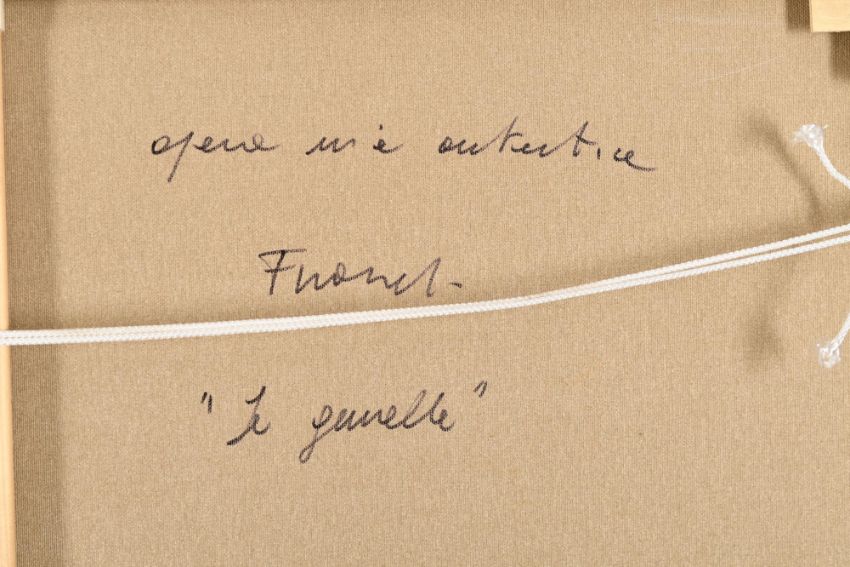 opera mia autentica
"Le gemelle"